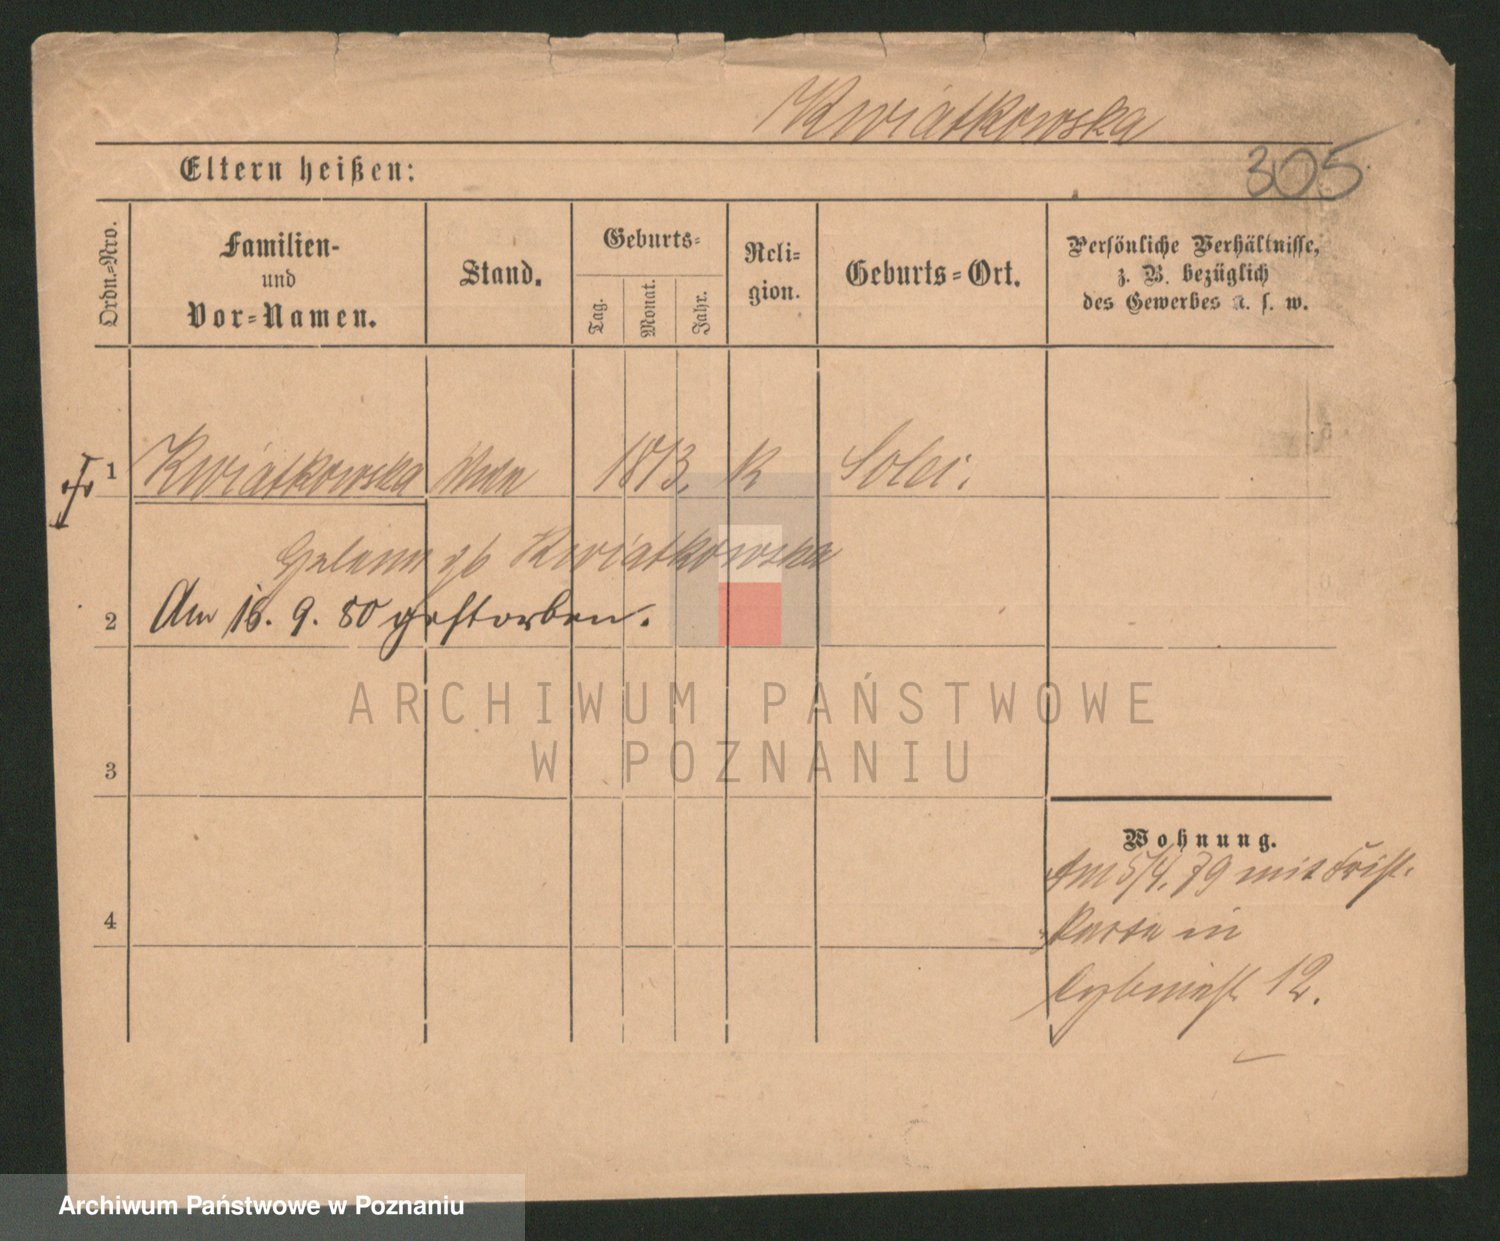 Kwiatkowska
305
Eltern heißen:
Ordn.=Nro.
Familien-
und
Vor=Namen.
Stand.
Geburts=
Tag.
Monat.
Jahr.
Reli=
gion.
Geburts=Ort.
Persönliche Verhältnisse,
z. B. bezüglich
des Gewerbes u. s. w.
1 Kwiatkowska 1813. K
Kwiatkowska
2 Am 16. 9. 80 gestorben.
ARCHIWUM PAŃSTWOWE
W POZNANIU
3
Wohnung.
Am 5/4. 79 mit
4
Karte in
12.
Archiwum Państwowe w Poznaniu